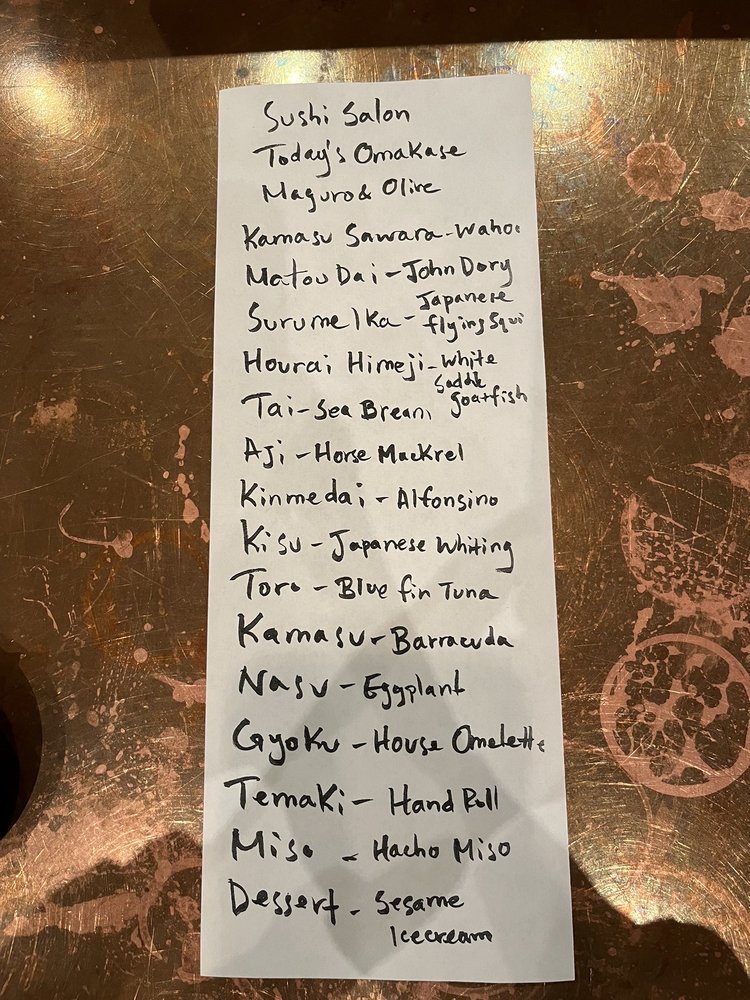 Sushi Salon
Today's Omakase
Maguro & Olive
Kamasu Sawara - Wahoo
Matou Dai - John Dory
Surume Ika - Japanese flying Squi
Hourai Himeji - White Saddle goatfish
Tai - Sea Bream
Aji - Horse Mackrel
Kinmedai - Alfonsino
Kisu - Japanese Whiting
Toro - Blue fin Tuna
Kamasu - Barracuda
Nasu - Eggplant
Gyoku - House Omelette
Temaki - Hand Roll
Miso - Hacho Miso
Dessert - Sesame
Icecream